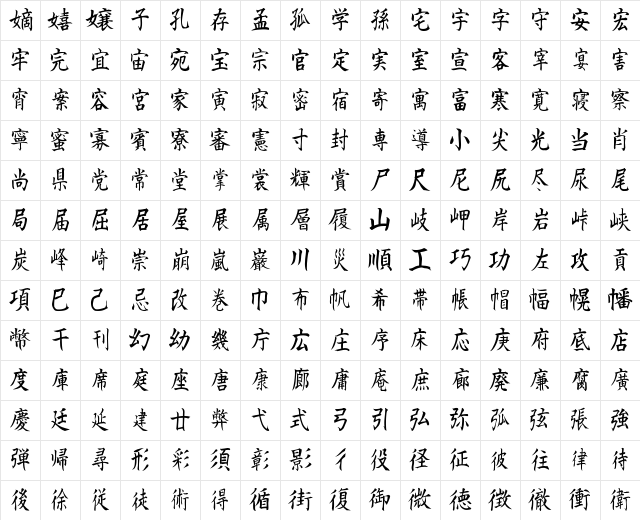 嫡嬉嬢子孔存孟孤学孫宅宇字守安宏
牢完宜宙宛宝宗官定実室宣客宰宴害
宵案容宮家寅寂密宿寄寓富寒寛寝察
寧蜜寡賓寮審憲寸封専導小尖光当肖
尚県党常堂掌裳輝賞尸尺尼尻尽尿尾
局届屈居屋展属層履山岐岬岸岩峠峡
炭峰崎崇崩嵐巌川災順工巧功左攻貢
項巳己忌改巻巾布帆希帯帳帽幅幌幡
幣干刊幻幼幾庁広庄序床応庚府底店
度庫席庭座唐康廊庸庵庶廓廃廉腐廣
慶廷延建廿弊弋式弓引弘弥弧弦張強
弾帰尋形彩須彰影彳役径征彼往律待
後徐従徒術得循街復御微徳徴徹衝衛